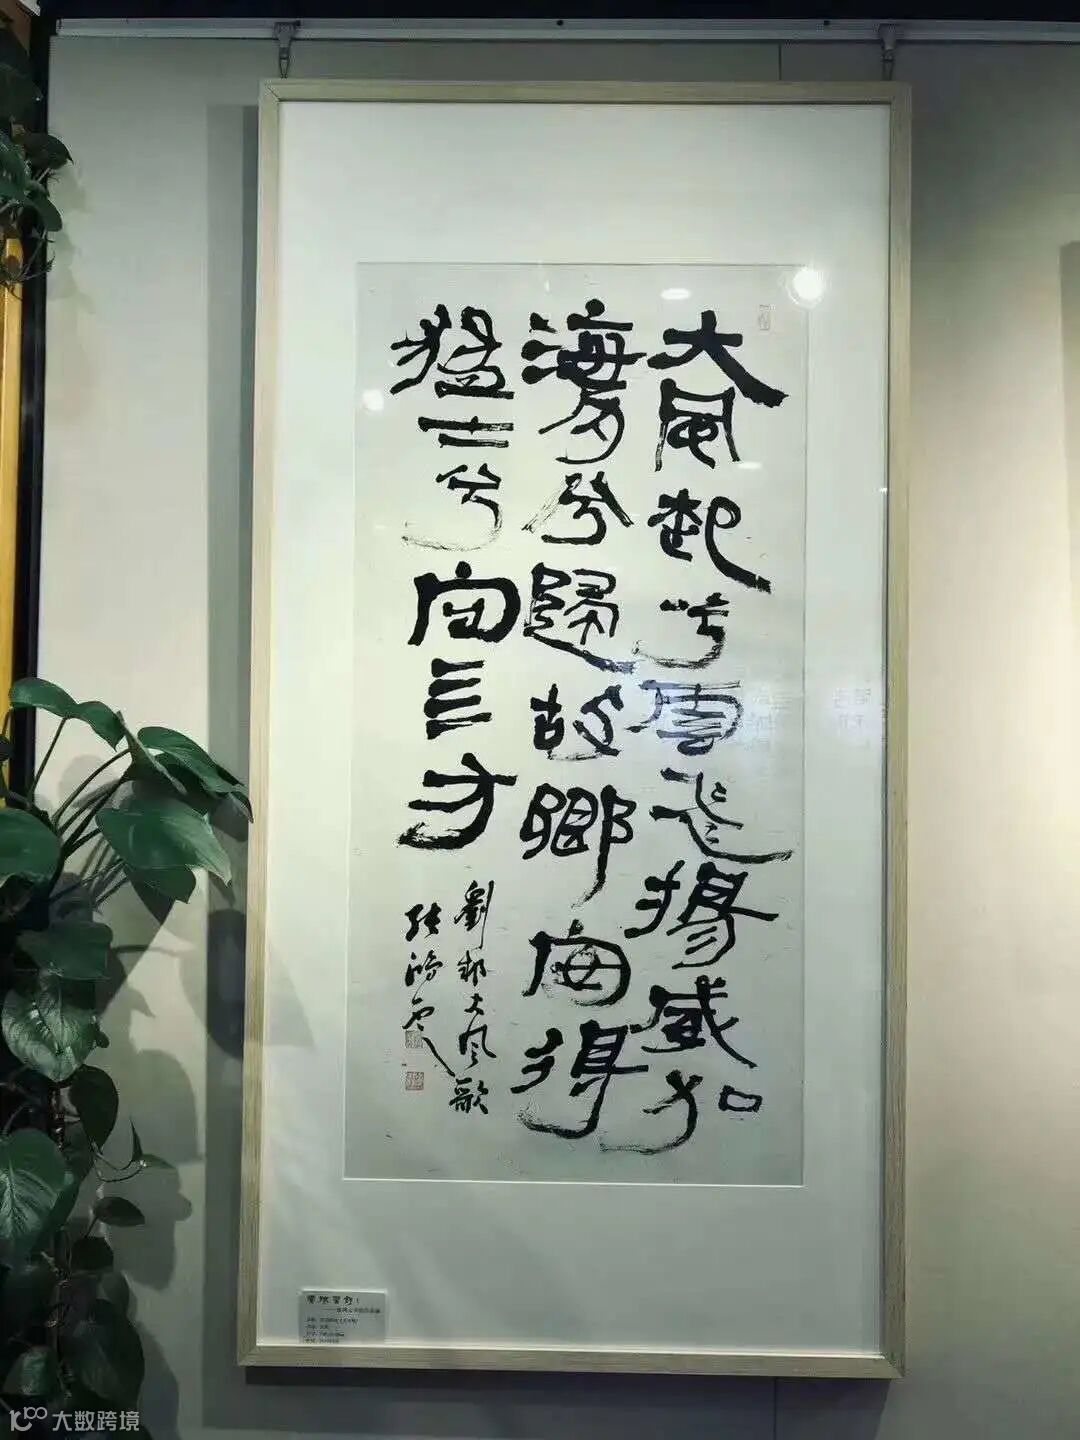 大風起兮雲飛揚威加
海內兮歸故鄉安得
猛士兮守亖方
劉邦大風歌
張鴻
大数跨境